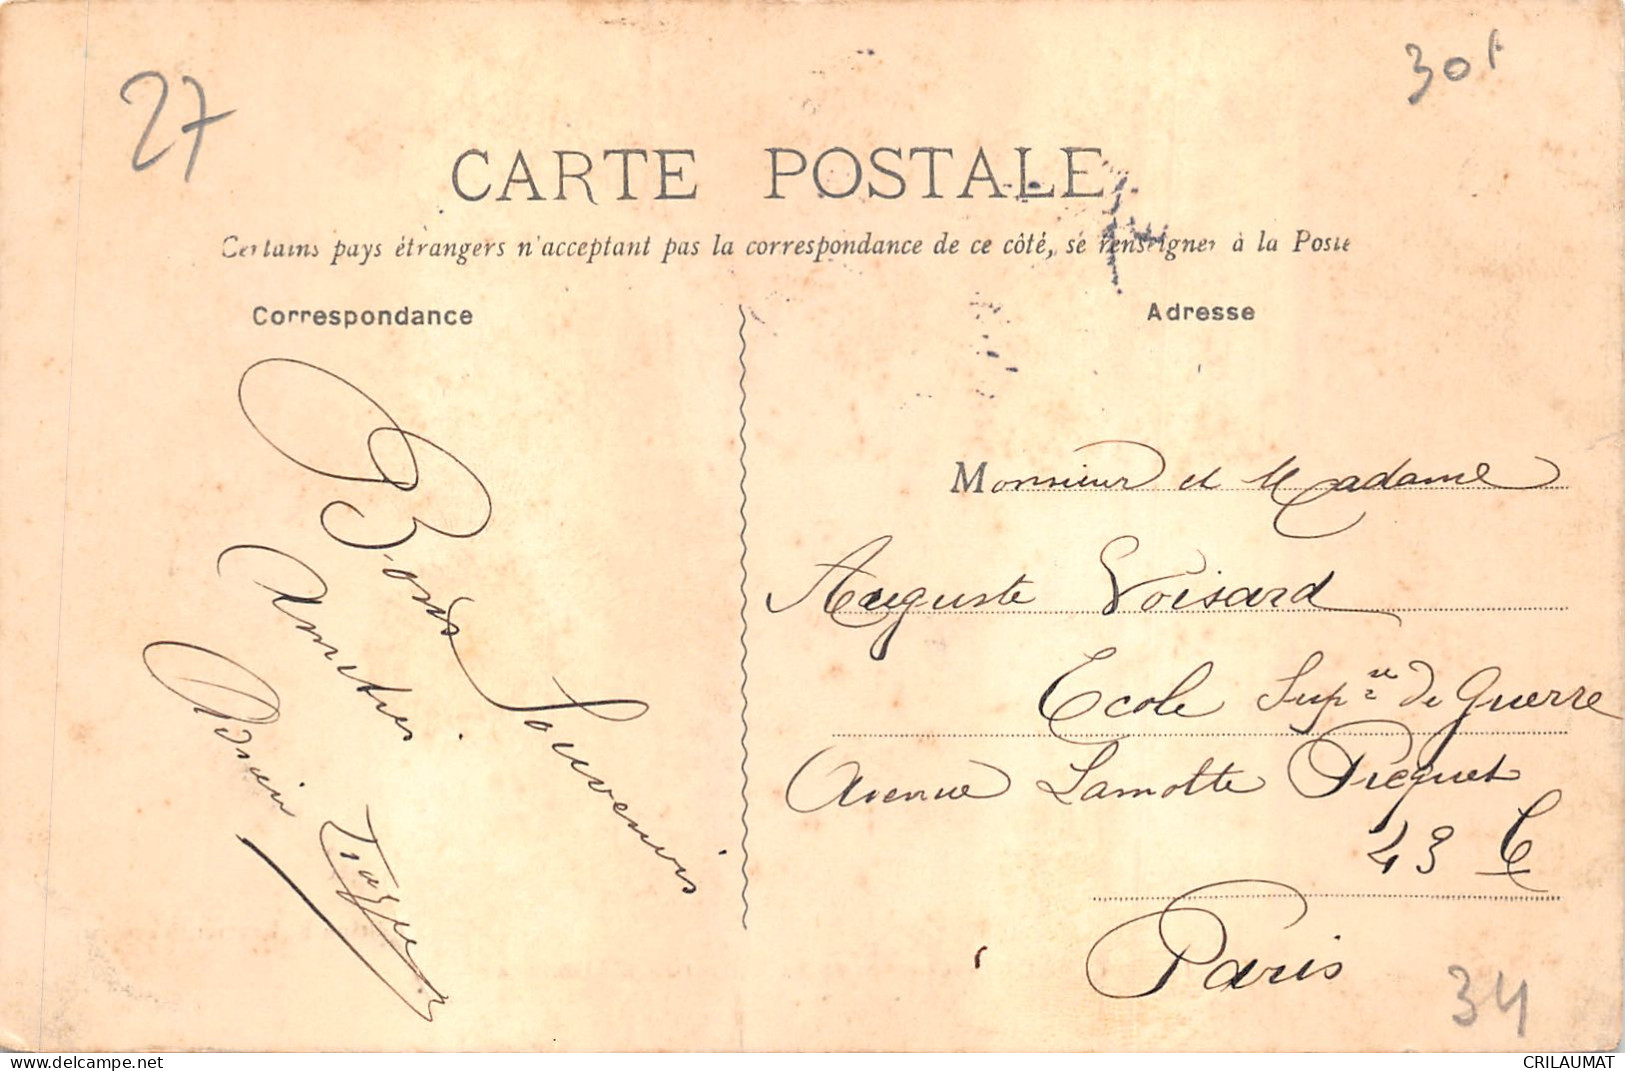 27
30f
CARTE POSTALE
Certains pays étrangers n'acceptant pas la correspondance de ce côté, se renseigner à la Poste
Correspondance
Adresse
Bons Souvenirs
Amitiés
Monsieur et Madame
Auguste Voisard
Ecole Supre de Guerre
Avenue Lamotte Picquet
43
Paris
34
delcampe.net
CRILAUMAT